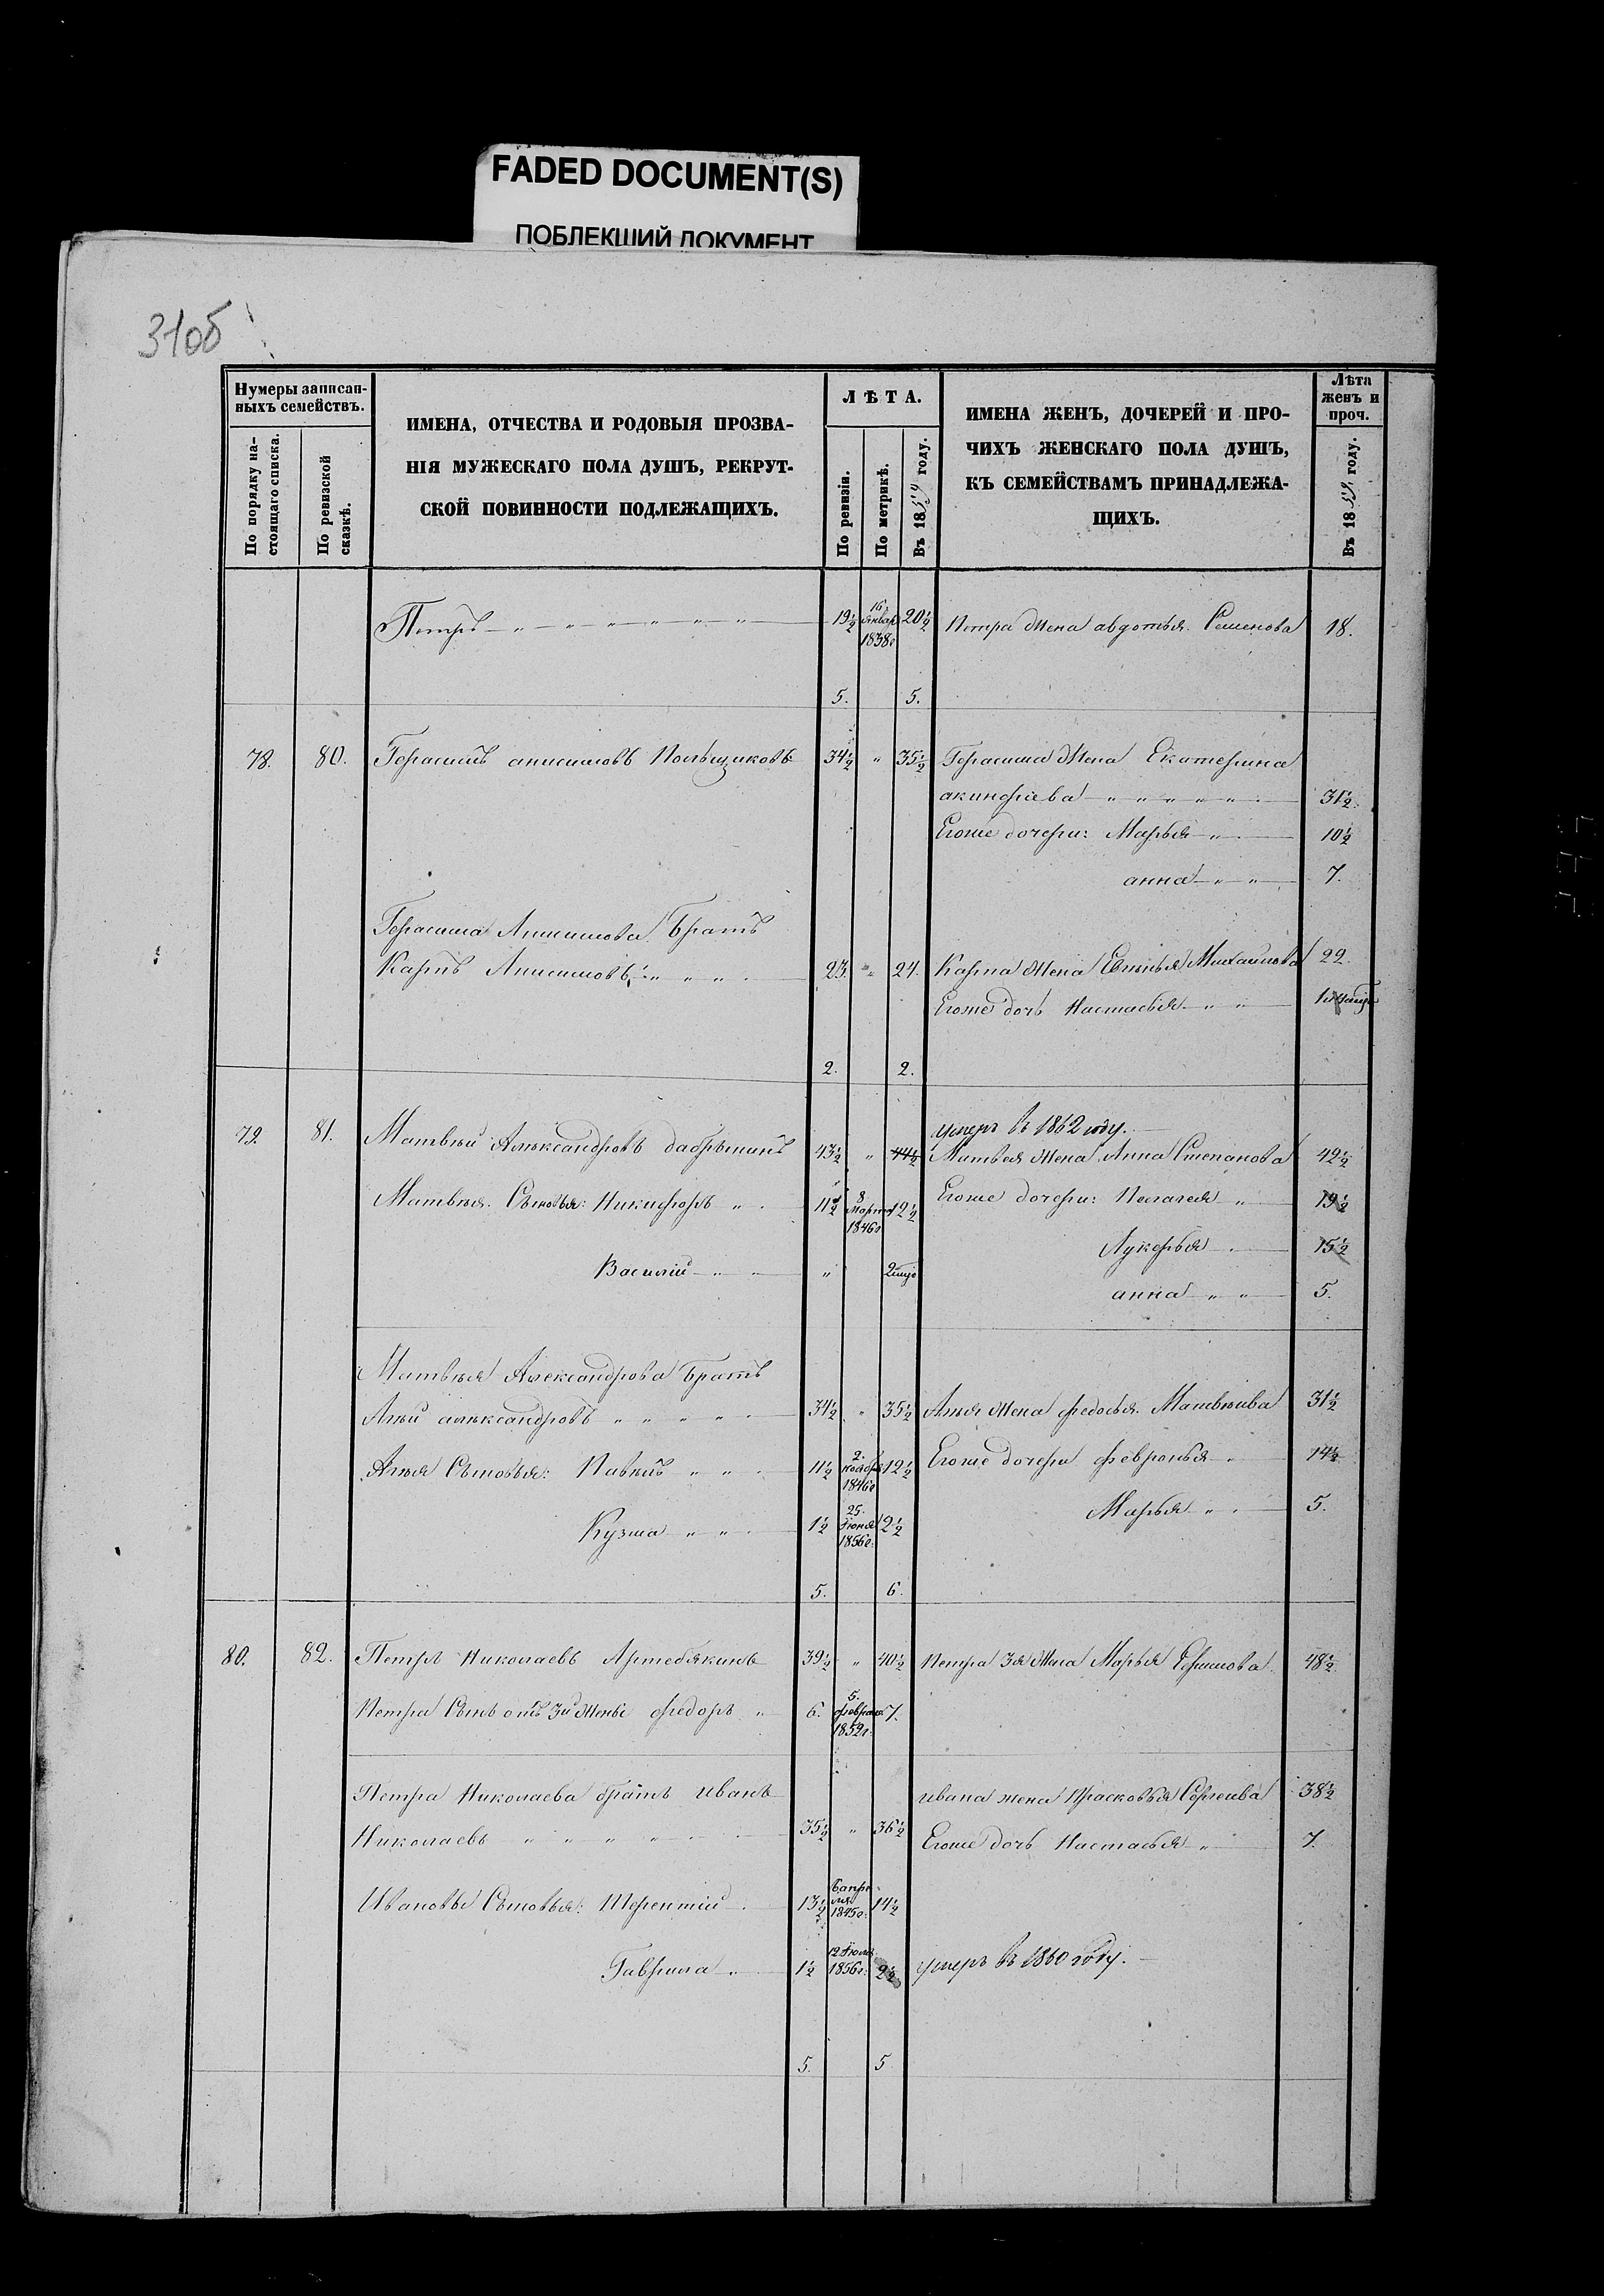 FADED DOCUMENT(S)
ПОБЛЕКШИЙ ДОКУМЕНТ
31об
Нумеры записан-
ныхъ семействъ.
По порядку на-
стоящаго списка.
По ревизской
сказкѣ.
ИМЕНА, ОТЧЕСТВА И РОДОВЫЯ ПРОЗВА-
НІЯ МУЖЕСКАГО ПОЛА ДУШЪ, РЕКРУТ-
СКОЙ ПОВИННОСТИ ПОДЛЕЖАЩИХЪ.
ЛѢТА.
По ревизіи.
По метрикѣ.
Въ 1859 году.
ИМЕНА ЖЕНЪ, ДОЧЕРЕЙ И ПРО-
ЧИХЪ ЖЕНСКАГО ПОЛА ДУШЪ,
КЪ СЕМЕЙСТВАМЪ ПРИНАДЛЕЖА-
ЩИХЪ.
Лѣта
женъ и
проч.
Въ 1859 году.
Петръ — " — " — " — " — " — " 19½ 16 Январ 1838г 20½ Петра Жена авдотья Семенова 18.
5. 5.
78. 80. Герасимъ анисимовъ 34½ " 35½ Герасима Жена Екатерина
акинфиева " " " " " 31½
Егоже дочери: Марья " 10½
анна " " 7.
Герасима Анисимова Братъ
Карпъ Анисимовъ " " " 23. " 24. Карпа Жена Михаилова 22.
Егоже дочь Настасья " "
2. 2.
умеръ въ 1862 году.
79. 81. Матвѣй Александровъ 43½ " 44½ Матвея Жена Анна Степанова 42½
Матвѣя Сыновья: Никифоръ " 11½ 8 Марта 1846г 12½ Егоже дочери: Пелагея " 19½
Лукерья 15½
Василій " " "
анна " " 5.
Матвѣя Александрова Братъ
александровъ " " " " 34½ " 35½ Жена федосья Матвѣива 31½
Сыновья: " " 11½ 2 ноября 1846г 12½ Егоже дочери февронья 14½
Кузма " " 1½ 25. Іюня 1856г: 2½
Марья " 5.
5. 6.
80. 82. Петръ Николаевъ 39½ " 40½ Петра 3я Жена Марья Ефимова 48½
Петра Сынъ отъ 3й Жены федоръ " 6. 5. февраля 1852г: 7.
Петра Николаева братъ иванъ
ивана жена Прасковья Сергеива 38½
Николаевъ " " " " 35½ " 36½
Егоже дочь Настасья " 7.
Ивановы Сыновья: Терентій 13½ 6 апре ля 1845г: 14½
Гаврила " 1½ 12 Іюля 1856г: 2½ умеръ въ 1860 году.
5. 5